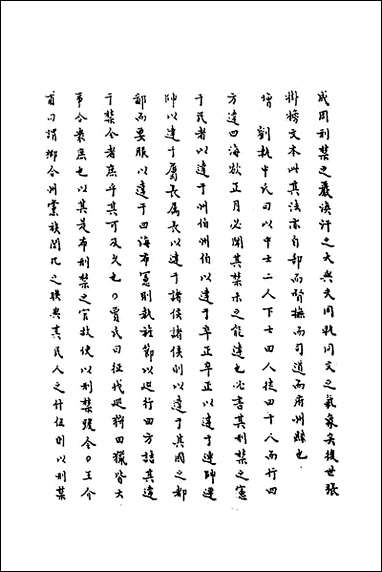 成周刑禁之嚴該計之大與夫同軌同文之氣象矣後世張
掛榜文本此其法亦自部而督撫而司道而府州縣也
增劉執中氏曰以中士二人下士四人徒四十人而行四
方達四海欲正月必聞其禁未之能達也必言其刑禁之憲
于民者以達于州伯州伯以達于卒正卒正以達于連帥連
帥以達于屬長屬長以達于諸侯諸侯則以達于其國之都
鄙而要服以達于四海布憲則執旌節以廵行四方詰其違
于禁令者庶乎其可及矣也○賈氏曰征伐廵狩田獵皆大
事合衆庶也以其是布刑禁之官故使以刑禁號令○王介
甫曰謂鄉合州黨族閭比之聯與其民人之什伍則以刑禁